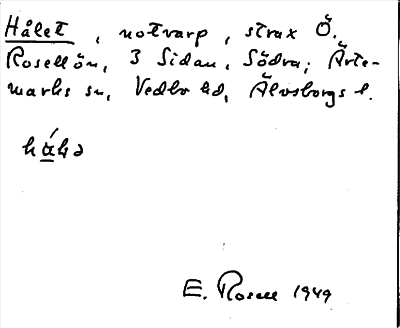 Hålet, notvarp, strax Ö.
Rosellön, 3 Sidan, Södra; Ärte-
marks sn, Vedbo hd, Älvsborgs l.
E. Rosell 1949